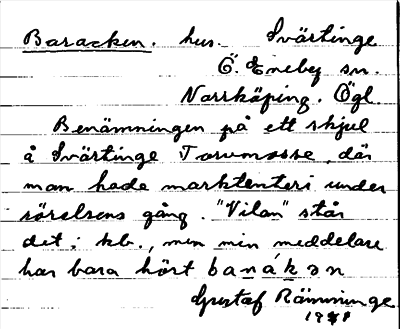 Baracken. hus. Svärtinge
Ö. Eneby sn.
Norrköping. Ögl.
Benämningen på ett skjul
å Svärtinge Torvmosse, där
man hade marktenteri under
rörelsens gång. "Vilan" står
det i kb., men min meddelare
har bara hört banákən
Gustaf Rämminge